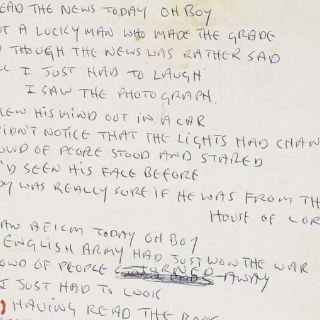 EAD THE NEWS TODAY OH BOY
T A LUCKY MAN WHO MADE THE GRADE
THOUGH THE NEWS WAS RATHER SAD
I JUST HAD TO LAUGH
I SAW THE PHOTOGRAPH.
LEW HIS MIND OUT IN A CAR
IDN'T NOTICE THAT THE LIGHTS HAD CHAN
OWD OF PEOPLE STOOD AND STARED
'D SEEN HIS FACE BEFORE
DY WAS REALLY SURE IF HE WAS FROM TH
HOUSE OF LOR
AW A FILM TODAY OH BOY
ENGLISH ARMY HAD JUST WON THE WAR
OWD OF PEOPLE TURNED AWAY
I JUST HAD TO LOOK
HAVING READ THE BOOK